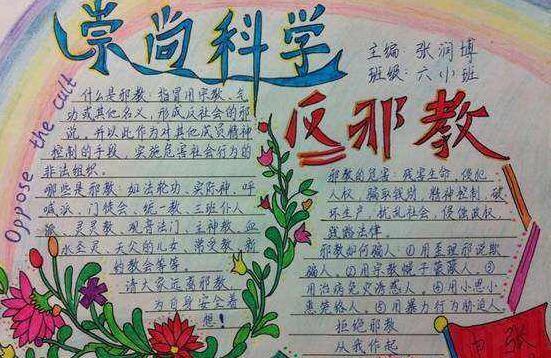 崇尚科学
主编 张润博
班级:六小班
Oppose the cult
反邪教
什么是邪教:指冒用宗教、气
功或其他名义,形成反社会的邪
说,并以此作为对其他成员精神
控制的手段,实施危害社会行为的
非法组织。
哪些是邪教:如法轮功、实际神、呼
喊派、门徒会、统一教、三班仆人
派、灵灵教、观音法门、主神教、血
水圣灵、天父的儿女、常受教、新
的教会等等。
请大家远离邪教,
为自身安全着
想!
邪教的危害:残害生命,侵犯
人权,骗取钱财,精神控制,破
坏生产,扰乱社会,侵蚀政权
法律
邪教如何骗人:①用歪理邪说欺
骗人,②用宗教幌子蒙蔽人,③
用治病免灾诱惑人,④用小恩小
惠笼络人,⑤用暴力行为胁迫人
拒绝邪教
从我作起
张